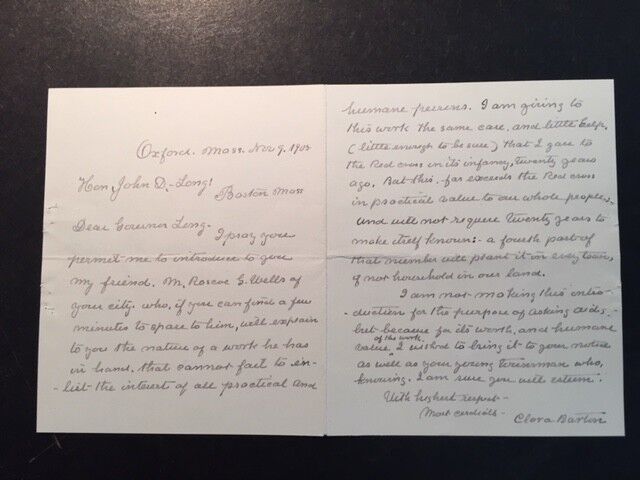 Oxford. Mass. Nov 9, 190
Hon, John D. Long!
Boston Mass
Dear Governor Long.
I pray you
permit me to introduce to you
my friend, Mr, Roscoe G. Wells of
your city. who, if you can find a few
minutes to spare to him, will explain
to you the nature of a work he has
in hand, that cannot fail to en-
-list the interest of all practical and
humane persons. I am giving to
this work the same care, and little help,
(little enough to be sure) that I gave to
the Red cross in its infancy, twenty years
ago. But this - far exceeds the Red cross
in practical value to our whole people,
and will not require twenty years to
make itself known:- a fourth part of
that number will plant it in every town,
if not household in our land.
I am not making this intro-
-duction for the purpose of asking aids.
- but because for its worth, and humane
of the work
value, I wished to bring it to your notice
as well as your young townsman who,
knowing. I am sure you will esteem.
With highest respect -
Most cordially -
Clara Barton